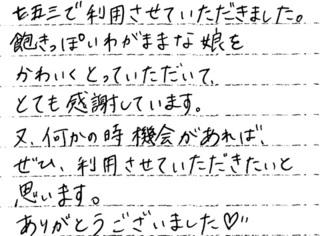 七五三で利用させていただきました。
飽きっぽいわがままな娘を
かわいくとっていただいて、
とても感謝しています。
又、何かの時機会があれば、
ぜひ、利用させていただきたいと
思います。
ありがとうございました♡〃